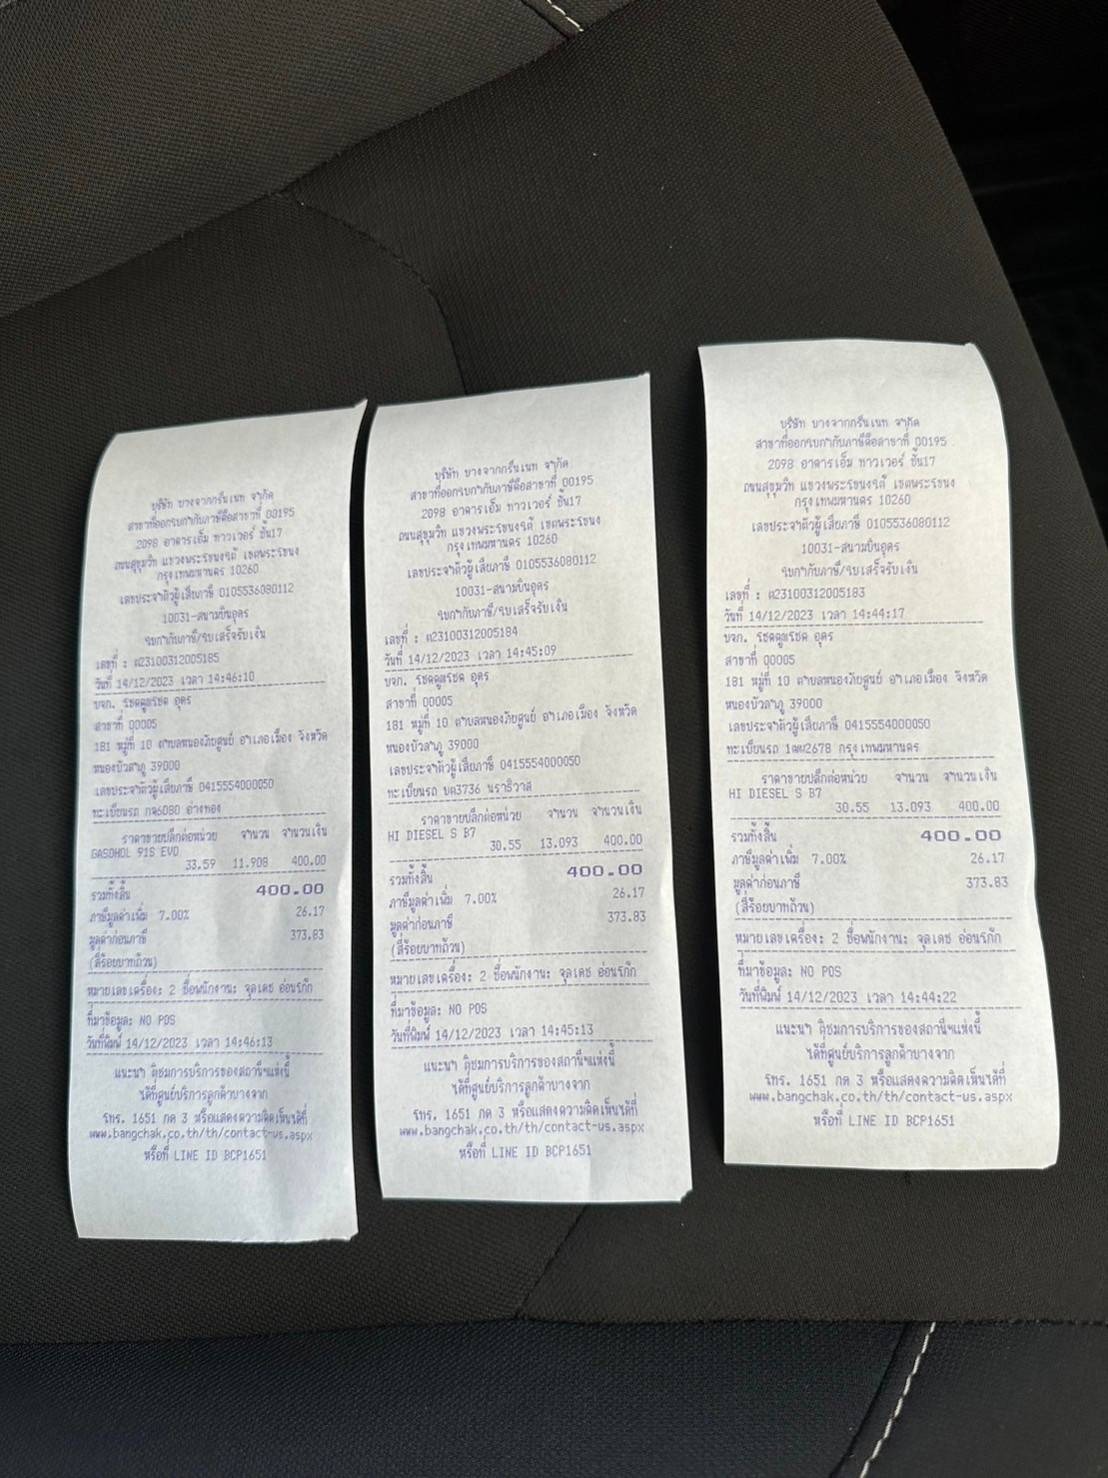 บริษัท บางจากกรีนเนท จำกัด
สาขาที่ออกใบกำกับภาษีคือสาขาที่ 00195
2098 อาคารเอ็ม ทาวเวอร์ ชั้น17
ถนนสุขุมวิท แขวงพระโขนงใต้ เขตพระโขนง
กรุงเทพมหานคร 10260
เลขประจำตัวผู้เสียภาษี 0105536080112
10031-สนามบินอุดร
ใบกำกับภาษี/ใบเสร็จรับเงิน
เลขที่ : ต23100312005185
วันที่ 14/12/2023 เวลา 14:46:10
บจก. โชคคูณโชค อุดร
สาขาที่ 00005
181 หมู่ที่ 10 ตำบลหนองภัยศูนย์ อำเภอเมือง จังหวัด
หนองบัวลำภู 39000
เลขประจำตัวผู้เสียภาษี 0415554000050
ทะเบียนรถ กจ6080 อ่างทอง
ราคาขายปลีกต่อหน่วย จำนวน จำนวนเงิน
GASOHOL 91S EVO
33.59 11.908 400.00
รวมทั้งสิ้น 400.00
ภาษีมูลค่าเพิ่ม 7.00% 26.17
มูลค่าก่อนภาษี 373.83
(สี่ร้อยบาทถ้วน)
หมายเลขเครื่อง: 2 ชื่อพนักงาน: จุลเดช อ่อนโกัก
ที่มาข้อมูล: NO POS
วันที่พิมพ์ 14/12/2023 เวลา 14:46:13
แนะนำ ติชมการบริการของสถานีฯแห่งนี้
ได้ที่ศูนย์บริการลูกค้าบางจาก
โทร. 1651 กด 3 หรือแสดงความคิดเห็นได้ที่
www.bangchak.co.th/th/contact-us.aspx
หรือที่ LINE ID BCP1651
บริษัท บางจากกรีนเนท จำกัด
สาขาที่ออกใบกำกับภาษีคือสาขาที่ 00195
2098 อาคารเอ็ม ทาวเวอร์ ชั้น17
ถนนสุขุมวิท แขวงพระโขนงใต้ เขตพระโขนง
กรุงเทพมหานคร 10260
เลขประจำตัวผู้เสียภาษี 0105536080112
10031-สนามบินอุดร
ใบกำกับภาษี/ใบเสร็จรับเงิน
เลขที่ : ต23100312005184
วันที่ 14/12/2023 เวลา 14:45:09
บจก. โชคคูณโชค อุดร
สาขาที่ 00005
181 หมู่ที่ 10 ตำบลหนองภัยศูนย์ อำเภอเมือง จังหวัด
หนองบัวลำภู 39000
เลขประจำตัวผู้เสียภาษี 0415554000050
ทะเบียนรถ บต3736 นราธิวาส
ราคาขายปลีกต่อหน่วย จำนวน จำนวนเงิน
HI DIESEL S B7
30.55 13.093 400.00
รวมทั้งสิ้น 400.00
ภาษีมูลค่าเพิ่ม 7.00% 26.17
มูลค่าก่อนภาษี 373.83
(สี่ร้อยบาทถ้วน)
หมายเลขเครื่อง: 2 ชื่อพนักงาน: จุลเดช อ่อนโกัก
ที่มาข้อมูล: NO POS
วันที่พิมพ์ 14/12/2023 เวลา 14:45:13
แนะนำ ติชมการบริการของสถานีฯแห่งนี้
ได้ที่ศูนย์บริการลูกค้าบางจาก
โทร. 1651 กด 3 หรือแสดงความคิดเห็นได้ที่
www.bangchak.co.th/th/contact-us.aspx
หรือที่ LINE ID BCP1651
บริษัท บางจากกรีนเนท จำกัด
สาขาที่ออกใบกำกับภาษีคือสาขาที่ 00195
2098 อาคารเอ็ม ทาวเวอร์ ชั้น17
ถนนสุขุมวิท แขวงพระโขนงใต้ เขตพระโขนง
กรุงเทพมหานคร 10260
เลขประจำตัวผู้เสียภาษี 0105536080112
10031-สนามบินอุดร
ใบกำกับภาษี/ใบเสร็จรับเงิน
เลขที่ : ต23100312005183
วันที่ 14/12/2023 เวลา 14:44:17
บจก. โชคคูณโชค อุดร
สาขาที่ 00005
181 หมู่ที่ 10 ตำบลหนองภัยศูนย์ อำเภอเมือง จังหวัด
หนองบัวลำภู 39000
เลขประจำตัวผู้เสียภาษี 0415554000050
ทะเบียนรถ 1ฒฒ2678 กรุงเทพมหานคร
ราคาขายปลีกต่อหน่วย จำนวน จำนวนเงิน
HI DIESEL S B7
30.55 13.093 400.00
รวมทั้งสิ้น 400.00
ภาษีมูลค่าเพิ่ม 7.00% 26.17
มูลค่าก่อนภาษี 373.83
(สี่ร้อยบาทถ้วน)
หมายเลขเครื่อง: 2 ชื่อพนักงาน: จุลเดช อ่อนโกัก
ที่มาข้อมูล: NO POS
วันที่พิมพ์ 14/12/2023 เวลา 14:44:22
แนะนำ ติชมการบริการของสถานีฯแห่งนี้
ได้ที่ศูนย์บริการลูกค้าบางจาก
โทร. 1651 กด 3 หรือแสดงความคิดเห็นได้ที่
www.bangchak.co.th/th/contact-us.aspx
หรือที่ LINE ID BCP1651